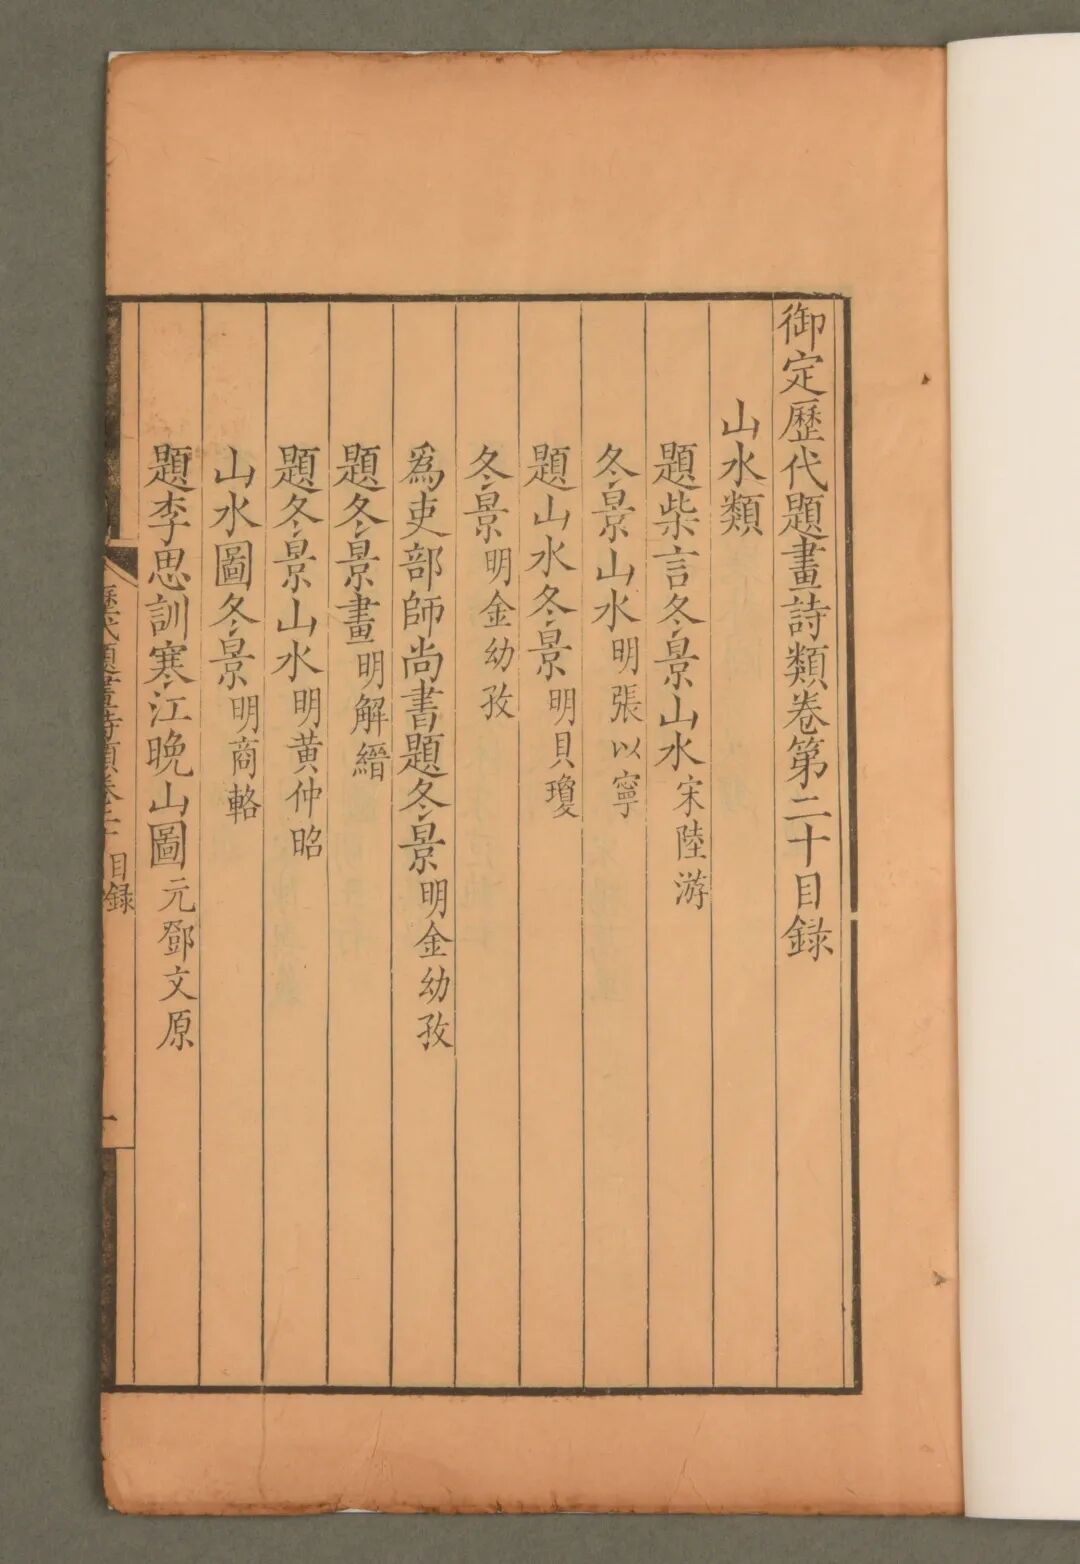 御定歷代題畫詩類卷第二十目録
山水類
題柴言冬景山水宋陸游
冬景山水明張以寧
題山水冬景明貝瓊
冬景明金幼孜
爲吏部師尚書題冬景明金幼孜
題冬景畫明解縉
題冬景山水明黃仲昭
山水圖冬景明商輅
題李思訓寒江晚山圖元鄧文原
歷代題畫詩類卷二十 目録
一